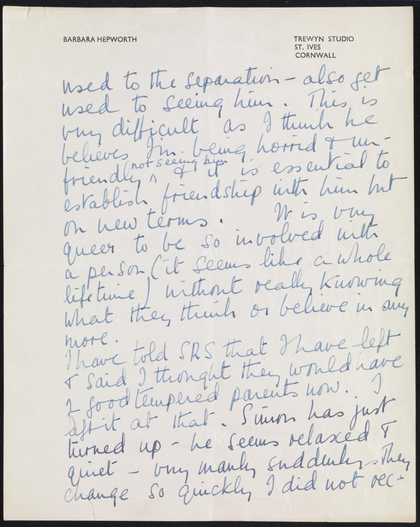 BARBARA HEPWORTH
TREWYN STUDIO
ST. IVES
CORNWALL
used to the separation – also get
used to seeing him. This is
very difficult as I think he
believes I'm being horrid & un-
friendly ^not seeing him & it is essential to
establish friendship with him but
on new terms. It is very
queer to be so involved with
a person (it seems like a whole
lifetime) without really knowing
what they think or believe in any
more.
I have told SRS that I have left
& said I thought they would have
2 good tempered parents now. I
left it at that. Simon has just
turned up – he seems relaxed &
quiet – very manly suddenly. They
change so quickly I did not rec-